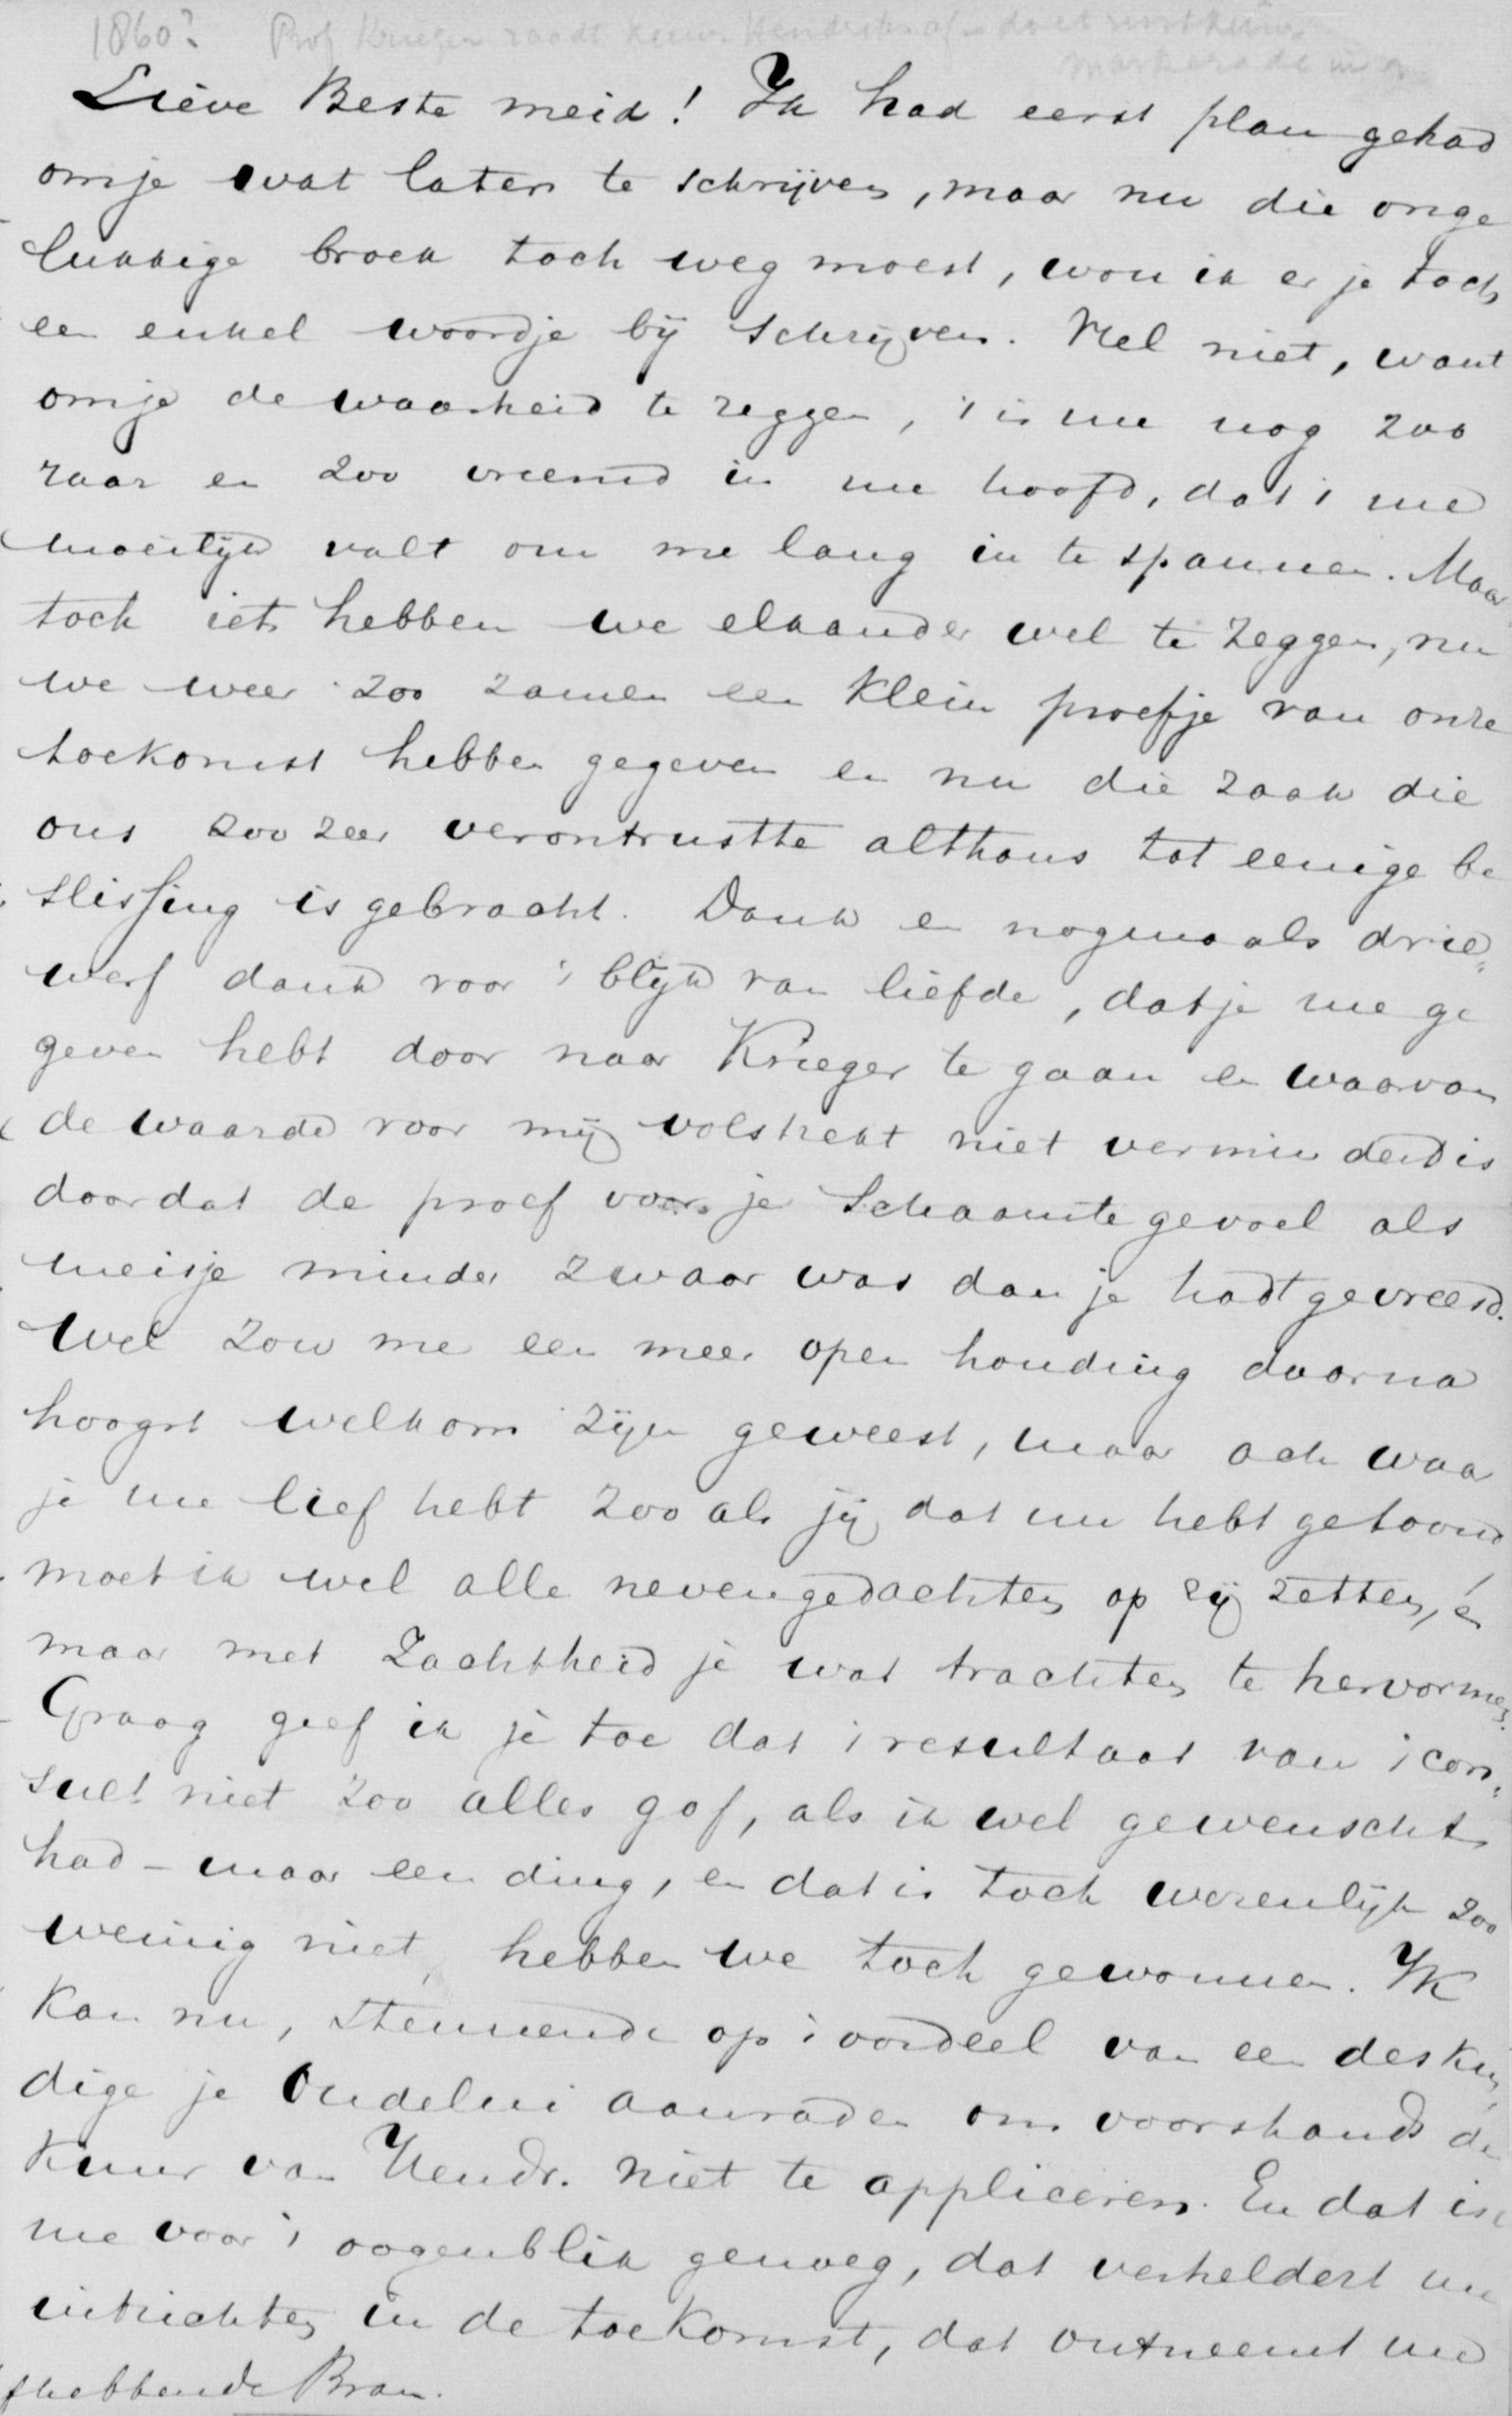 1860? Prof Krieger raadt kuur Hendriks af
Lieve Beste meid! Ik had eerst plan gehad
om je wat later te schrijven, maar nu die onge
lukkige broek toch weg moest, wou ik er je toch
een enkel woordje bij schrijven. Veel niet, want
om je de waarheid te zeggen, 't is me nog zoo
raar en zoo vreemd in me hoofd, dat 't me
moeilijk valt om me lang in te spannen. Maar
toch iets hebben we elkander wel te zeggen, nu
we weer zoo zamen een klein proefje van onze
toekomst hebben gegeven en nu die zaak die
ons zoo zeer verontrustte althans tot eenige be
slissing is gebracht. Dank en nogmaals drie„
werf dank voor 't blijk van liefde, dat je me ge
geven hebt door naar Krieger te gaan en waarvan
de waarde voor mij volstrekt niet verminderd is
doordat de proef voor je schaamtegevoel als
meisje minder zwaar was dan je hadt gevreesd.
Wel zou me een meer open houding daarna
hoogst welkom zijn geweest, maar och waar
je me lief hebt zooals jij dat me hebt getoond
moet ik wel alle nevengedachten op zij zetten, én
maar met zachtheid je wat trachten te hervormen.
Graag geef ik je toe dat 't resultaat van 't con„
sult niet zoo alles gaf, als ik wel gewenscht
had – maar een ding, en dat is toch wezenlijk zoo
weinig niet, hebben we toch gewonnen. Ik
kan nu, steunende op 't oordeel van een deskun
dige je Oudelui aanraden om voorshands de
kuur van Hendr. niet te appliceren. En dat is
me voor 't oogenblik genoeg, dat verheldert me
uitzichten in de toekomst, dat ontneemt me
fhebbende Bram.